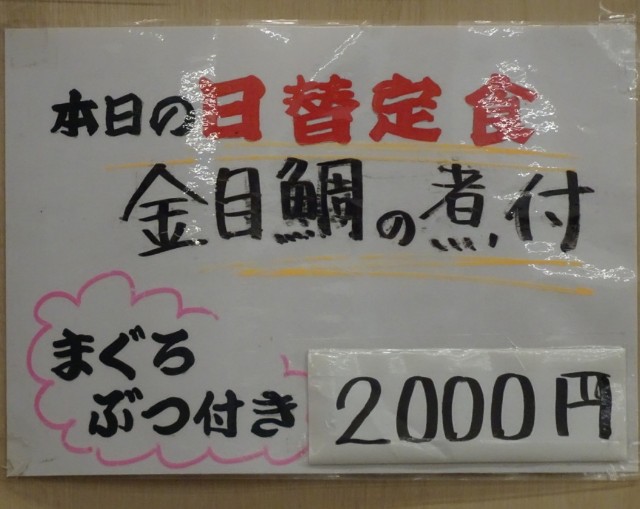 本日の日替定食
金目鯛の煮付
まぐろ
ぶつ付き
2000円